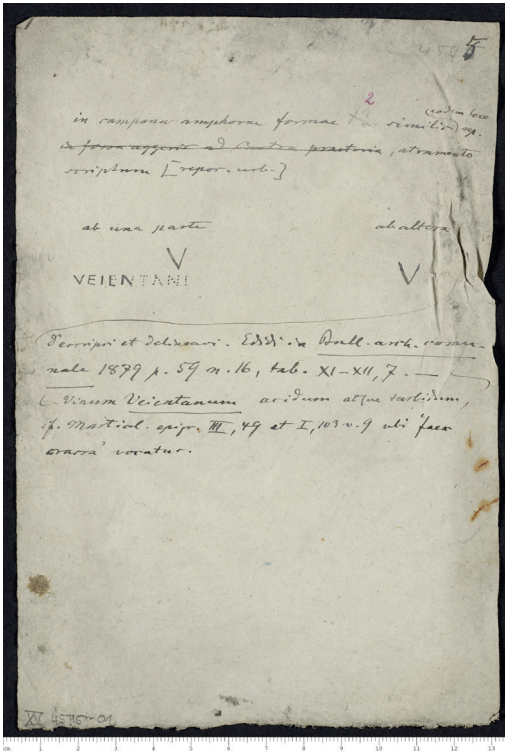 4595
2
(eodem loco
in campana amphorae formae similis) rep.
in fossa aggeris ad Castra praetoria, atramento
scriptum [repos. urb.]
ab una parte ab altera
V
VEIENTANI V
Descripsi et delineavi. Edidi in Bull. arch. comu-
nale 1879 p. 59 n. 16, tab. XI-XII, 7. —
(- Vinum Veientanum acidum atque turbidum,
cf. Martial. epigr. III, 49 et I, 103 v. 9 ubi 'faex
crassa' vocatur.
XV 4595-01